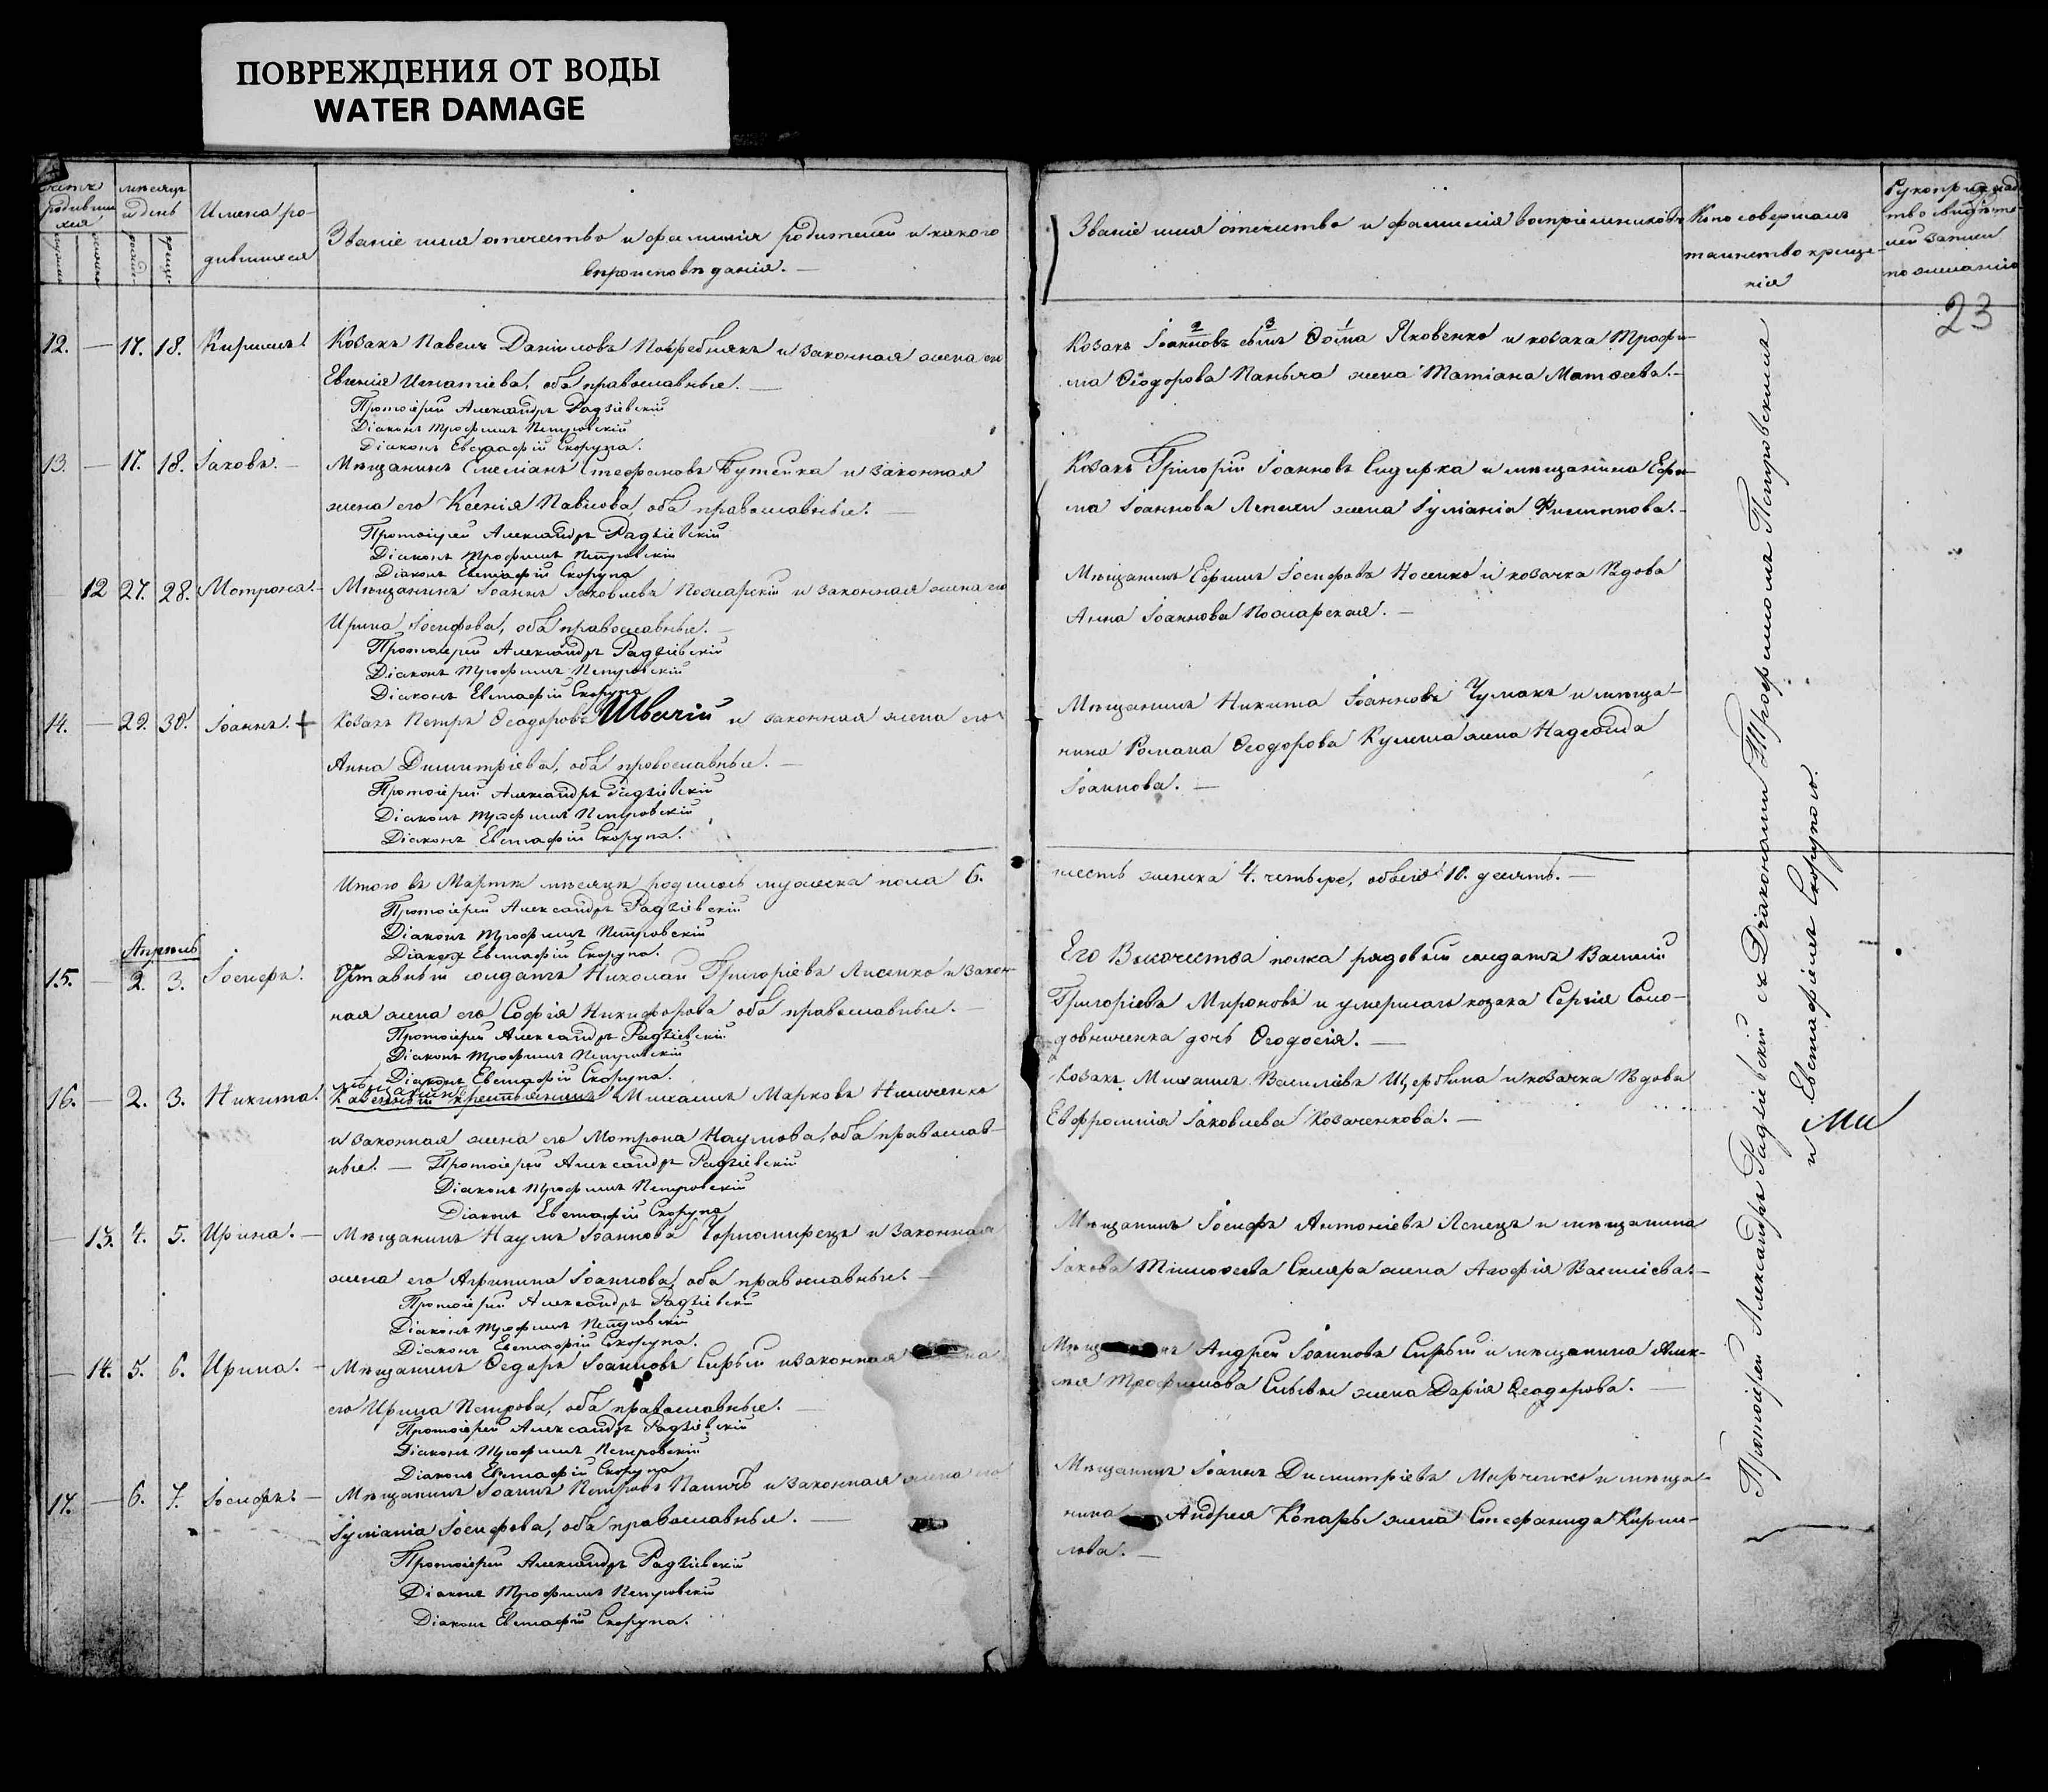 ПОВРЕЖДЕНИЯ ОТ ВОДЫ
WATER DAMAGE
мѣсяцъ
и день
Имена ро-
дившихся
Званіе имя отечество и фамилія родителей и какого
вѣроисповѣданія. —
12. — 17. 18. Кириллъ Козакъ Павелъ Даніиловъ Погребнякъ и законная жена его
Евгенія Игнатіева, оба православные. —
Протоіерей Александръ Радзіевскій
Діаконъ Трофимъ Петровскій
Діаконъ Евстафій Скорупа.
13. — 17. 18. Іаковъ. — Мѣщанинъ Емеліанъ Стефановъ Бутейка и законная
жена его Ксенія Павлова, оба православные. —
Протоіерей Александръ Радзіевскій
Діаконъ Трофимъ Петровскій
Діаконъ Евстафій Скорупа
12 27. 28. Мотрона. — Мѣщанинъ Іоаннъ Іаковлевъ Пожарскій и законная жена его
Ирина Іосифова, оба православные. —
Протоіерей Александръ Радзіевскій
Діаконъ Трофимъ Петровскій
Діаконъ Евстафій Скорупа
14. — 29. 30. Іоаннъ. + Козакъ Петръ Ѳеодоровъ Швачій и законная жена его
Анна Димитріева, оба православные. —
Протоіерей Александръ Радзіевскій
Діаконъ Трофимъ Петровскій
Діаконъ Евстафій Скорупа.
Итого въ Мартѣ мѣсяцѣ родилось мужеска пола 6.
Протоіерей Александръ Радзіевскій
Діаконъ Трофимъ Петровскій
Діаконъ Евстафій Скорупа.
Апрѣль
15. — 2. 3. Іосифъ. Отставный солдатъ Николай Григоріевъ Лисенко и закон-
ная жена его Софія Никифорова оба православные. —
Протоіерей Александръ Радзіевскій
Діаконъ Трофимъ Петровскій
Діаконъ Евстафій Скорупа.
16. — 2. 3. Никита. Казенный крестьянинъ Михаилъ Марковъ
и законная жена его Мотрона Наумова, оба православ-
ные. — Протоіерей Александръ Радзіевскій
Діаконъ Трофимъ Петровскій
Діаконъ Евстафій Скорупа
— 13. 4. 5. Ирина. — Мѣщанинъ Наумъ Іоанновъ Чорномирецъ и законная
жена его Агрипина Іоаннова, оба православные. —
Протоіерей Александръ Радзіевскій
Діаконъ Трофимъ Петровскій
Діаконъ Евстафій Скорупа.
— 14. 5. 6. Ирина. — Мѣщанинъ Ѳедоръ Іоанновъ Сирый и законная
его Ирина Петрова, оба православные. —
Протоіерей Александръ Радзіевскій
Діаконъ Трофимъ Петровскій
Діаконъ Евстафій Скорупа
17. — 6. 7. Іосифъ — Мѣщанинъ Іоаннъ Петровъ и законная жена его
Іуліанія Іосифова, оба православные. —
Протоіерей Александръ Радзіевскій
Діаконъ Трофимъ Петровскій
Діаконъ Евстафій Скорупа.
Званіе имя отечество и фамилія воспріемниковъ
Кто совершалъ
таинство креще-
нія
Рукоприклад
ство свидѣте-
лей записи
по желанію
23
Козакъ Іоанновъ сынъ Ѳома Яковенко и козака Трофи-
ма Ѳеодорова Паныча жена Татіана Матѳеева. —
Козакъ Григорій Іоанновъ Сидирка и мѣщанина Ефи-
ма Іоаннова Лепехи жена Іуліанія Филиппова. —
Мѣщанинъ Ефимъ Іосифовъ Носенко и козачка вдова
Анна Іоаннова Пожарская. —
Мѣщанинъ Никита Іоанновъ Чумакъ и мѣща-
нина Романа Ѳеодорова Кулиша жена Надежда
Іоаннова. —
шесть женска 4. четыре, обоего 10. десять. —
Его Высочества полка рядовый солдатъ Василій
Григоріевъ Мироновъ и умершаго козака Сергія Соло-
довниченка дочь Ѳеодосія. —
Козакъ Михаилъ Василіевъ Щербина и козачка вдова
Евфросинія Іаковлева Козаченкова. —
Мѣщанинъ Іосифъ Антоніевъ Лепецъ и мѣщанина
Іакова Тимоѳеева Скляра жена Агафія Василіева. —
Андрей Іоанновъ Сирый и мѣщанина Алек-
сія Трофимова жена Дарія Ѳеодорова. —
Мѣщанинъ Іоаннъ Димитріевъ Марченко и мѣща-
нина Андрея Копаръ жена Стефанида Кирил-
лова. —
Протоіерей Александръ Радзіевскій съ Діаконами Трофимомъ Петровскимъ
и Евстафіемъ Скорупою.